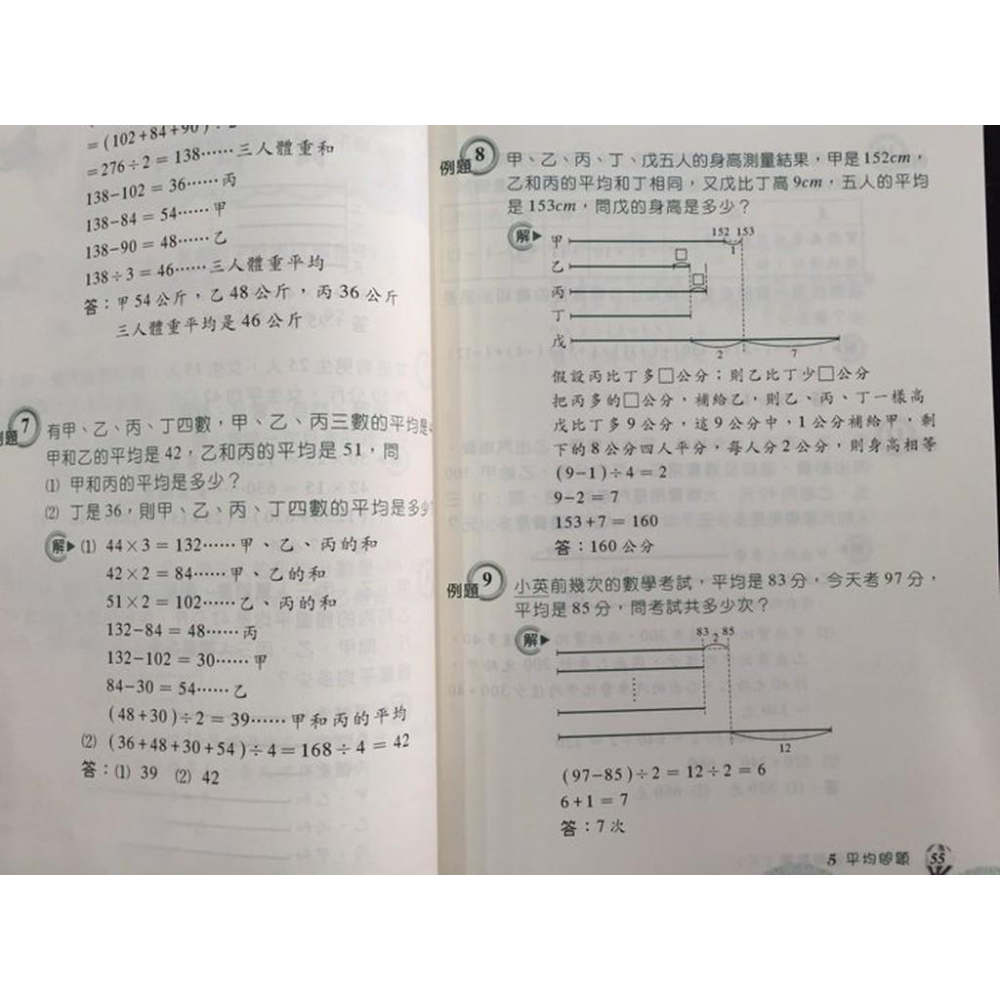 =(102+84+90)÷2
=276÷2 = 138……三人體重和
138-102 = 36……丙
138-84 = 54……甲
138-90 = 48……乙
138÷3 = 46……三人體重平均
答:甲54公斤,乙48公斤,丙36公斤
三人體重平均是46公斤
例題 7 有甲、乙、丙、丁四數,甲、乙、丙三數的平均是
甲和乙的平均是42,乙和丙的平均是51,問
(1) 甲和丙的平均是多少?
(2) 丁是36,則甲、乙、丙、丁四數的平均是多少
解 (1) 44×3 = 132……甲、乙、丙的和
42×2 = 84……甲、乙的和
51×2 = 102……乙、丙的和
132-84 = 48……丙
132-102 = 30……甲
84-30 = 54……乙
(48+30)÷2 = 39……甲和丙的平均
(2) (36+48+30+54)÷4 = 168÷4 = 42
答:(1) 39 (2) 42
例題 8 甲、乙、丙、丁、戊五人的身高測量結果,甲是152cm,
乙和丙的平均和丁相同,又戊比丁高9cm,五人的平均
是153cm,問戊的身高是多少?
解 甲 152 153
1
乙 □
丙 □
丁
戊
2 7
假設丙比丁多□公分;則乙比丁少□公分
把丙多的□公分,補給乙,則乙、丙、丁一樣高
戊比丁多9公分,這9公分中,1公分補給甲,剩
下的8公分四人平分,每人分2公分,則身高相等
(9-1)÷4 = 2
9-2 = 7
153+7 = 160
答:160公分
例題 9 小英前幾次的數學考試,平均是83分,今天考97分,
平均是85分,問考試共多少次?
解 83 2 85
12
(97-85)÷2 = 12÷2 = 6
6+1 = 7
答:7次
5 平均問題 55